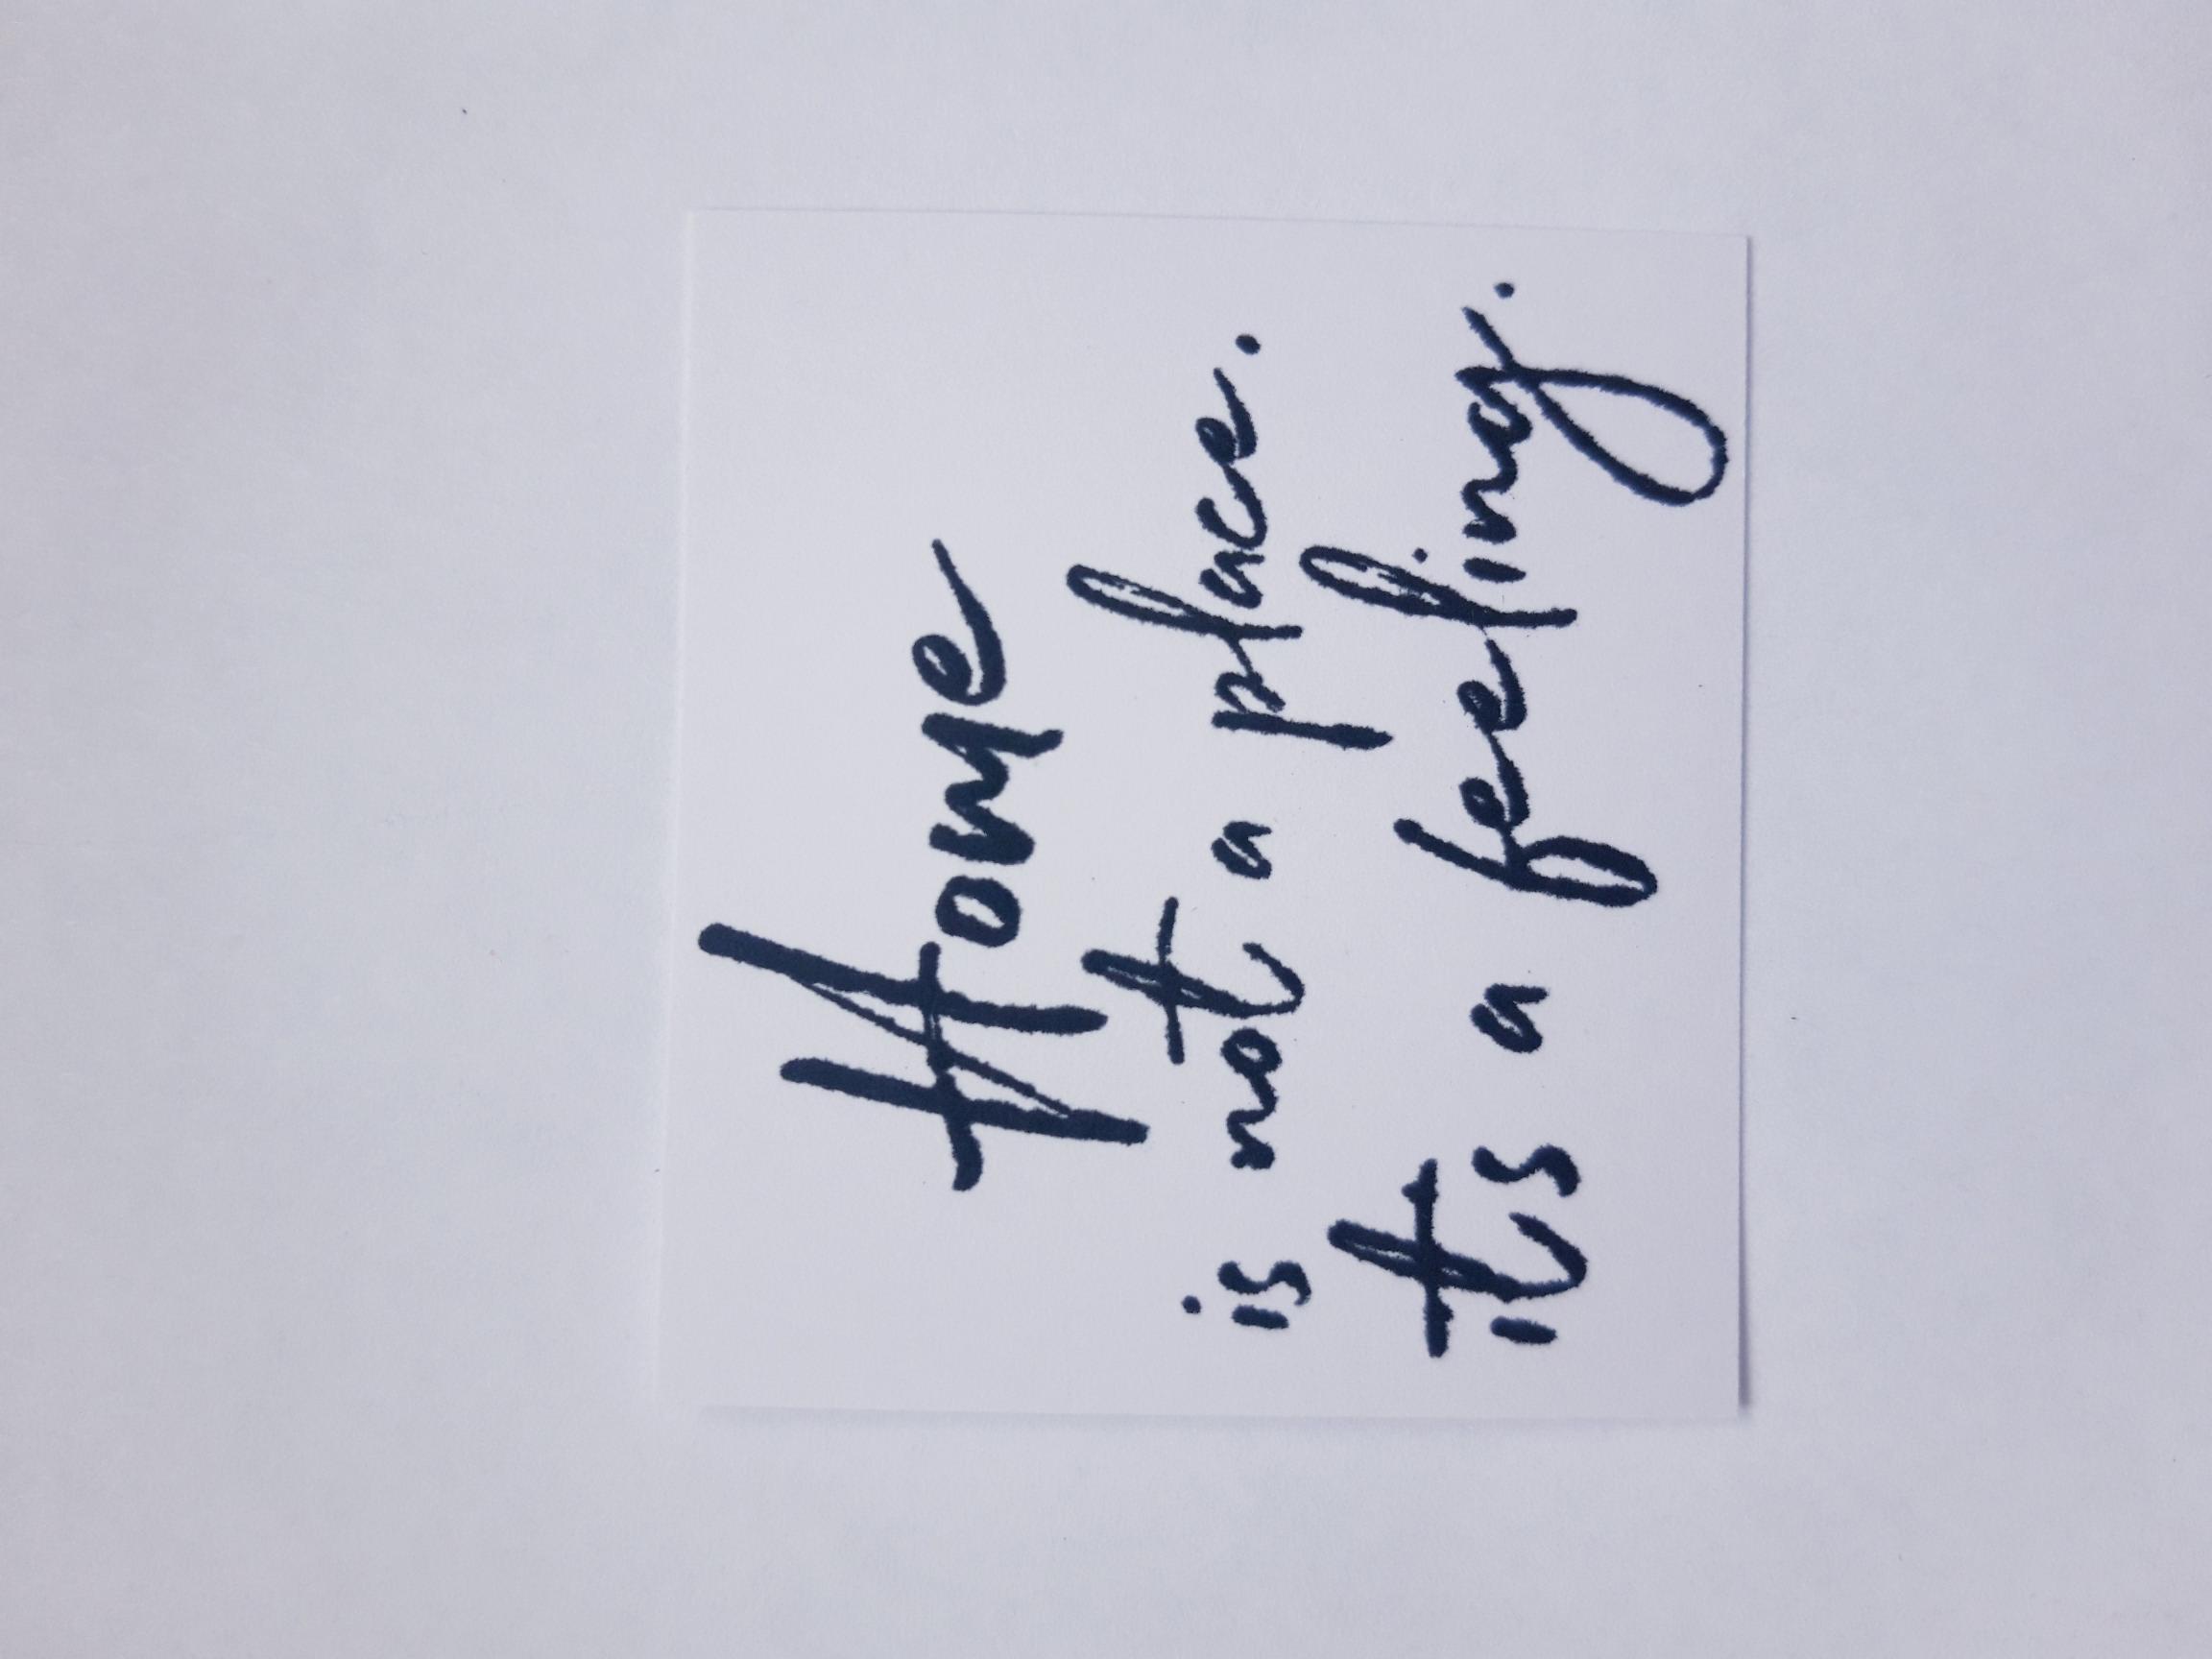 Home
is not a place.
its a feeling.